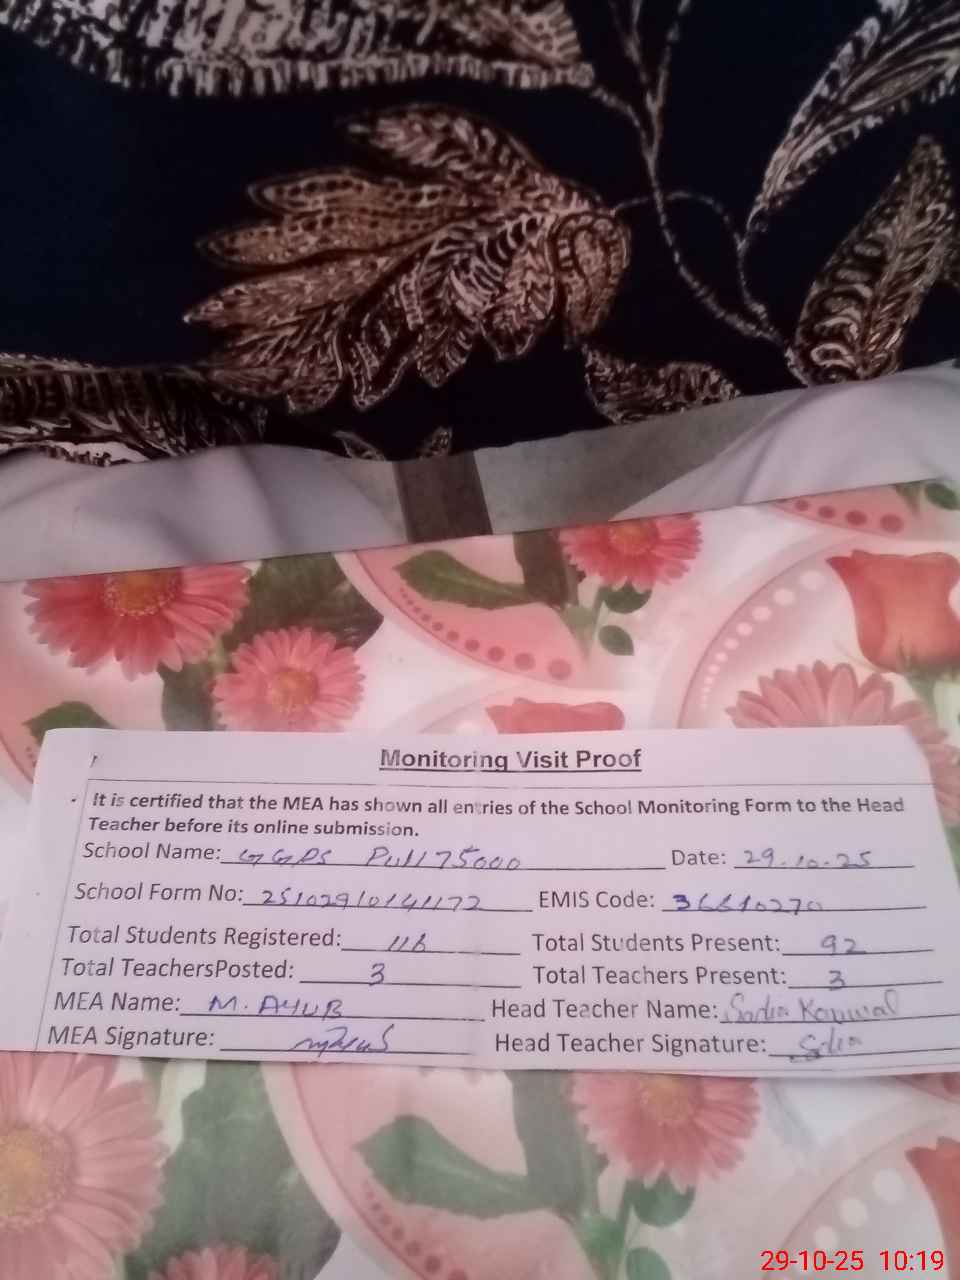 Monitoring Visit Proof
It is certified that the MEA has shown all entries of the School Monitoring Form to the Head
Teacher before its online submission.
School Name: GGPS Pull 75000 Date: 29.10.25
School Form No: 25102910141172 EMIS Code: 36610270
Total Students Registered: 116 Total Students Present: 92
Total TeachersPosted: 3 Total Teachers Present: 3
MEA Name: M. AYUB Head Teacher Name: Sadia Kanwal
MEA Signature: Head Teacher Signature: Sadia
29-10-25 10:19